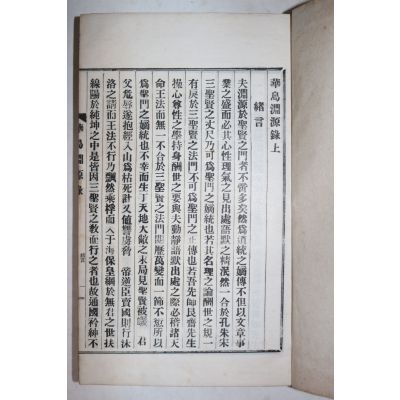 華島淵源錄上
緖言
夫淵源於聖賢之門者不啻多矣然爲道統之嫡傳不但以文章事
業之盛而必其心性理氣之見出處語默之精泯然一合於孔朱宋
三聖賢之丈尺乃可爲聖門之嫡統也若其名理之論酬世之規一
有戾於三聖賢之法門不可爲聖門之正傳也若吾先師艮齋先生
操心尊性之學持身酬世之要與夫動靜語默出處之際必稽諸天
命王法而無一不合於三聖賢之法門閱歷萬變而一節不愆所以
爲聖門之嫡統也不幸而生丁天地大敵之末局見聖賢被 君
父危辱遂抱經入山爲枯死計又値雙虜脅 帝逆臣賣國則行沐
洛之請而王法不行乃飄然乘桴而入于海保皇綱於無君之世扶
線陽於純坤之中是皆因三聖賢之敎而行之者也故通國衿紳不
華島淵源錄
緖言
一